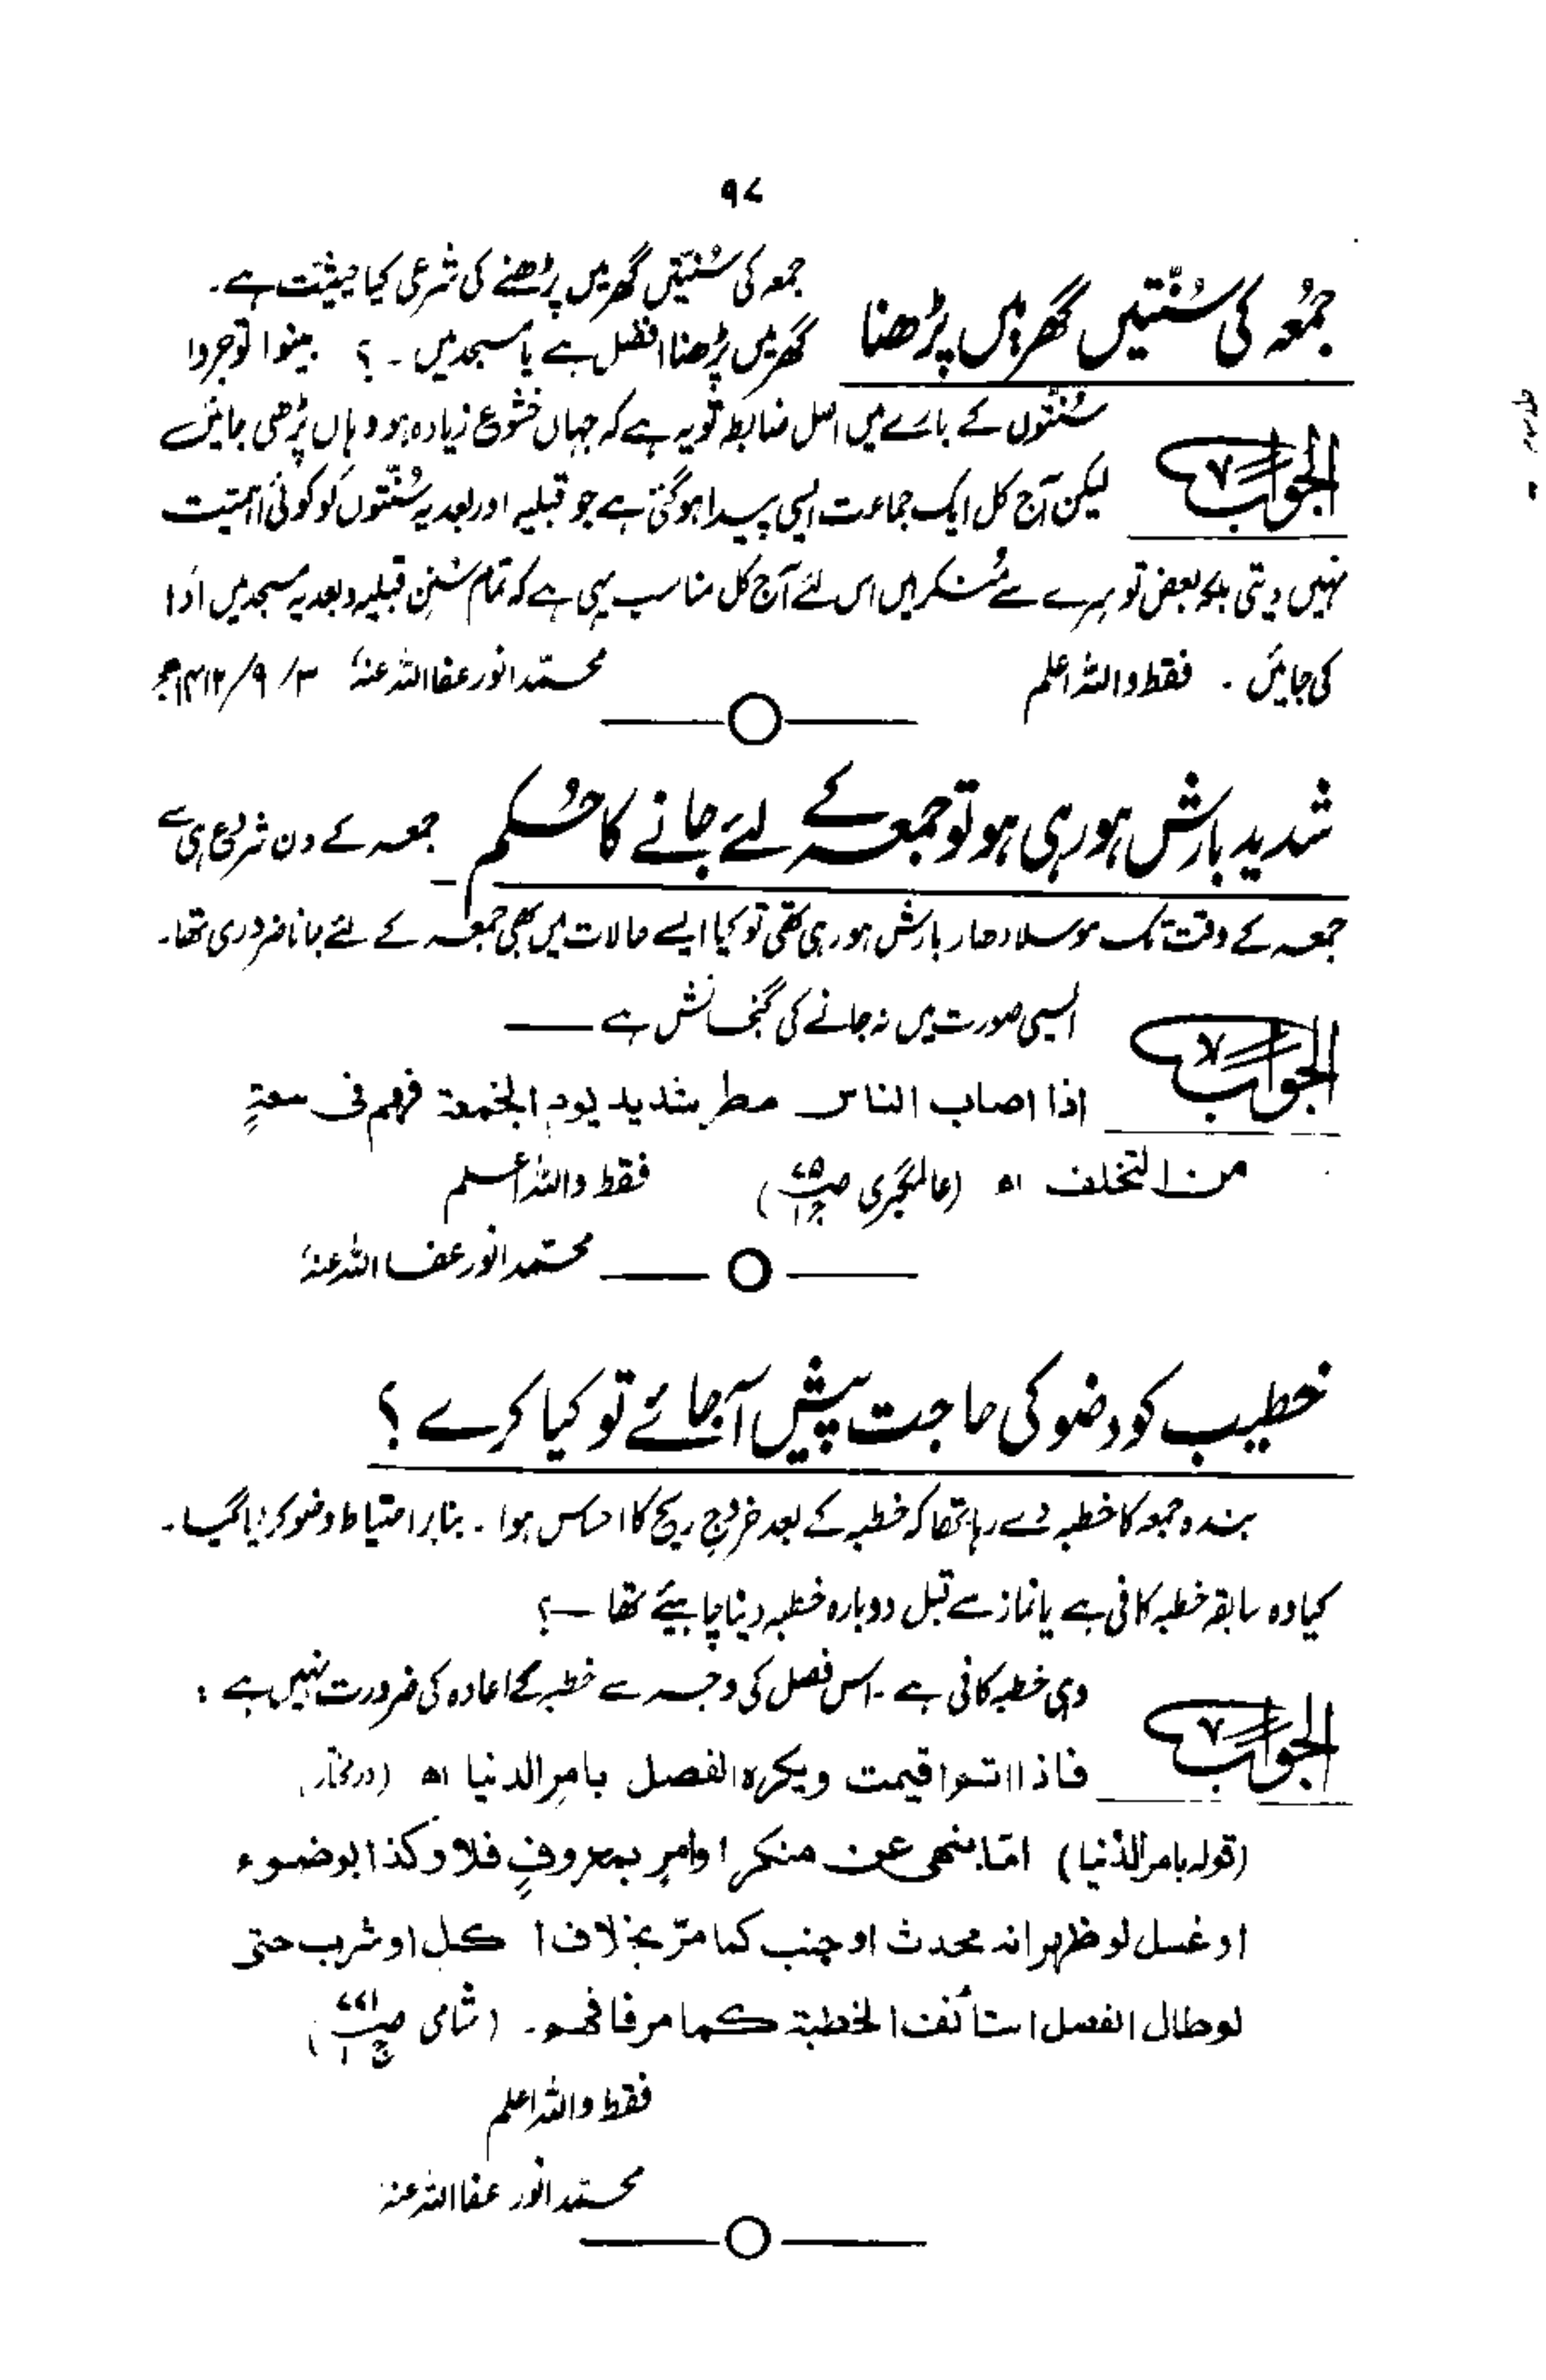 ۹۷
جمعہ کی سُنتیں گھر میں پڑھنا
جمعہ کی سُنتیں گھر میں پڑھنے کی شرعی کیا حیثیت ہے۔
گھر میں پڑھنا افضل ہے یا مسجد میں ۔ ؟ بینوا توجروا
الجواب
سُنتوں کے بارے میں اصل ضابطہ تو یہ ہے کہ جہاں خشوع زیادہ ہو وہاں پڑھی جائیں
لیکن آج کل ایک جماعت ایسی پیدا ہوگئی ہے جو قبلیہ اور بعدیہ سُنتوں کو کوئی اہمیّت
نہیں دیتی بلکہ بعض تو سرے سے مُنکر ہیں اس لئے آج کل مناسب یہی ہے کہ تمام سُنن قبلیہ و بعدیہ مسجد میں ادا
کی جائیں ۔ فقط واللہ اعلم
محمّد انور عفا اللہ عنہ ۳/۹/۱۴۱۲ھ
شدید بارش ہو رہی ہو تو جمعہ کے لئے جانے کا حُکم
جمعہ کے دن شروع ہی سے
جمعہ کے وقت تک موسلادھار بارش ہو رہی تھی تو کیا ایسے حالات میں بھی جمعہ کے لئے جانا ضروری تھا۔
الجواب
ایسی صورت میں نہ جانے کی گنجائش ہے —
اذا اصاب الناس مطر شدید یوم الجمعة فھم فی سعةٍ
من التخلف اھ (عالمگیری ص۷۵ ج۱) فقط واللہ اعلم
محمّد انور عفا اللہ عنہ
خطیب کو وضو کی حاجت پیش آجائے تو کیا کرے ؟
بندہ جمعہ کا خطبہ دے رہا تھا کہ خطبہ کے بعد خروجِ ریح کا احساس ہوا ۔ بنابر احتیاط وضو کر لیا گیا ۔
کیا وہ سابقہ خطبہ کافی ہے یا نماز سے قبل دوبارہ خطبہ دینا چاہیئے تھا —؟
الجواب
وہی خطبہ کافی ہے ۔ اس فصل کی وجہ سے خطبہ کے اعادہ کی ضرورت نہیں ہے :
فاذا اتم اقیمت ویکرہ الفصل بامر الدنیا اھ (درمختار)
(قولہ بامر الدُّنیا) امّا بنھی عن منکر او امرٍ بمعروفٍ فلا وکذا بوضوء
او غسل لو ظهر انه محدث او جنب کما مرّ بخلاف اکل او شرب حتی
لو طال الفصل استأنف الخطبة کما مر فافهم ۔ (شامی ص۷۷۱ ج۱)
فقط واللہ اعلم
محمّد انور عفا اللہ عنہ